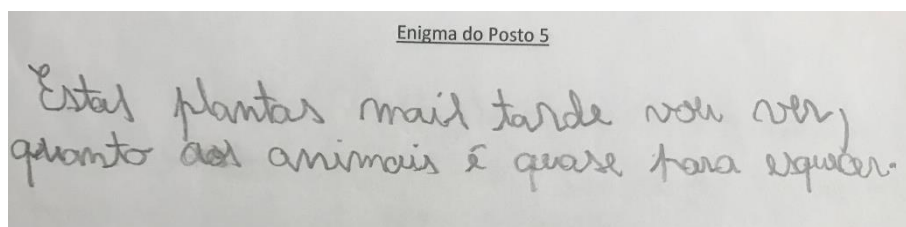 Enigma do Posto 5
Estas plantas mais tarde vou ver,
quanto aos animais é quase para esquecer.